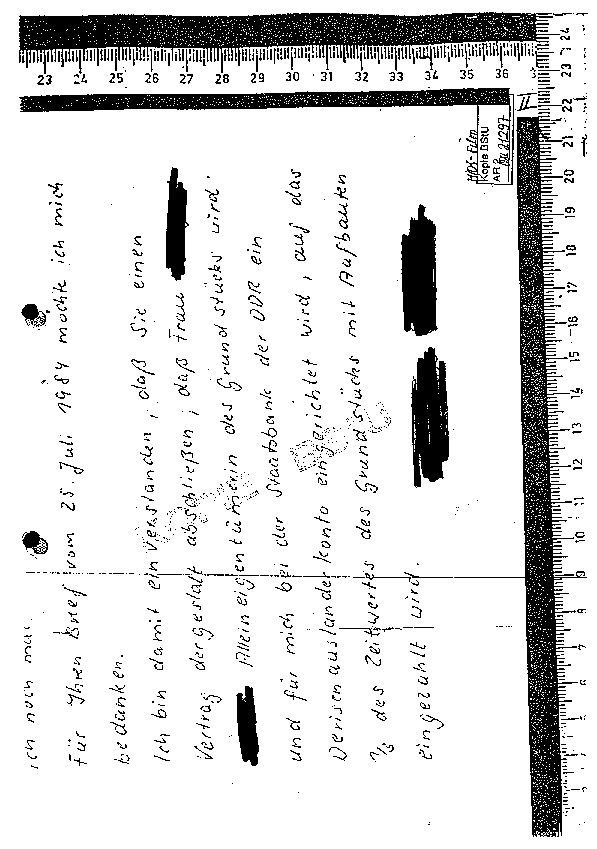 ich noch mal
Für Ihren Brief vom 25. Juli 1984 möchte ich mich
bedanken.
Ich bin damit einverstanden, daß Sie einen
Vertrag dergestalt abschließen, daß Frau
Alleineigentümerin des Grundstücks wird.
und für mich bei der Staatsbank der DDR ein
Devisenausländerkonto eingerichtet wird, auf das
des Zeitwertes des Grundstücks mit Aufbauten
eingezahlt wird.
MDK-Film
Kopie BStU
AR 2
II
23 24 25 26 27 28 29 30 31 32 33 34 35 36
24 23 22 21 20 19 18 17 16 15 14 13 12 11 10 9 8 7 6 5 4 3 2 1